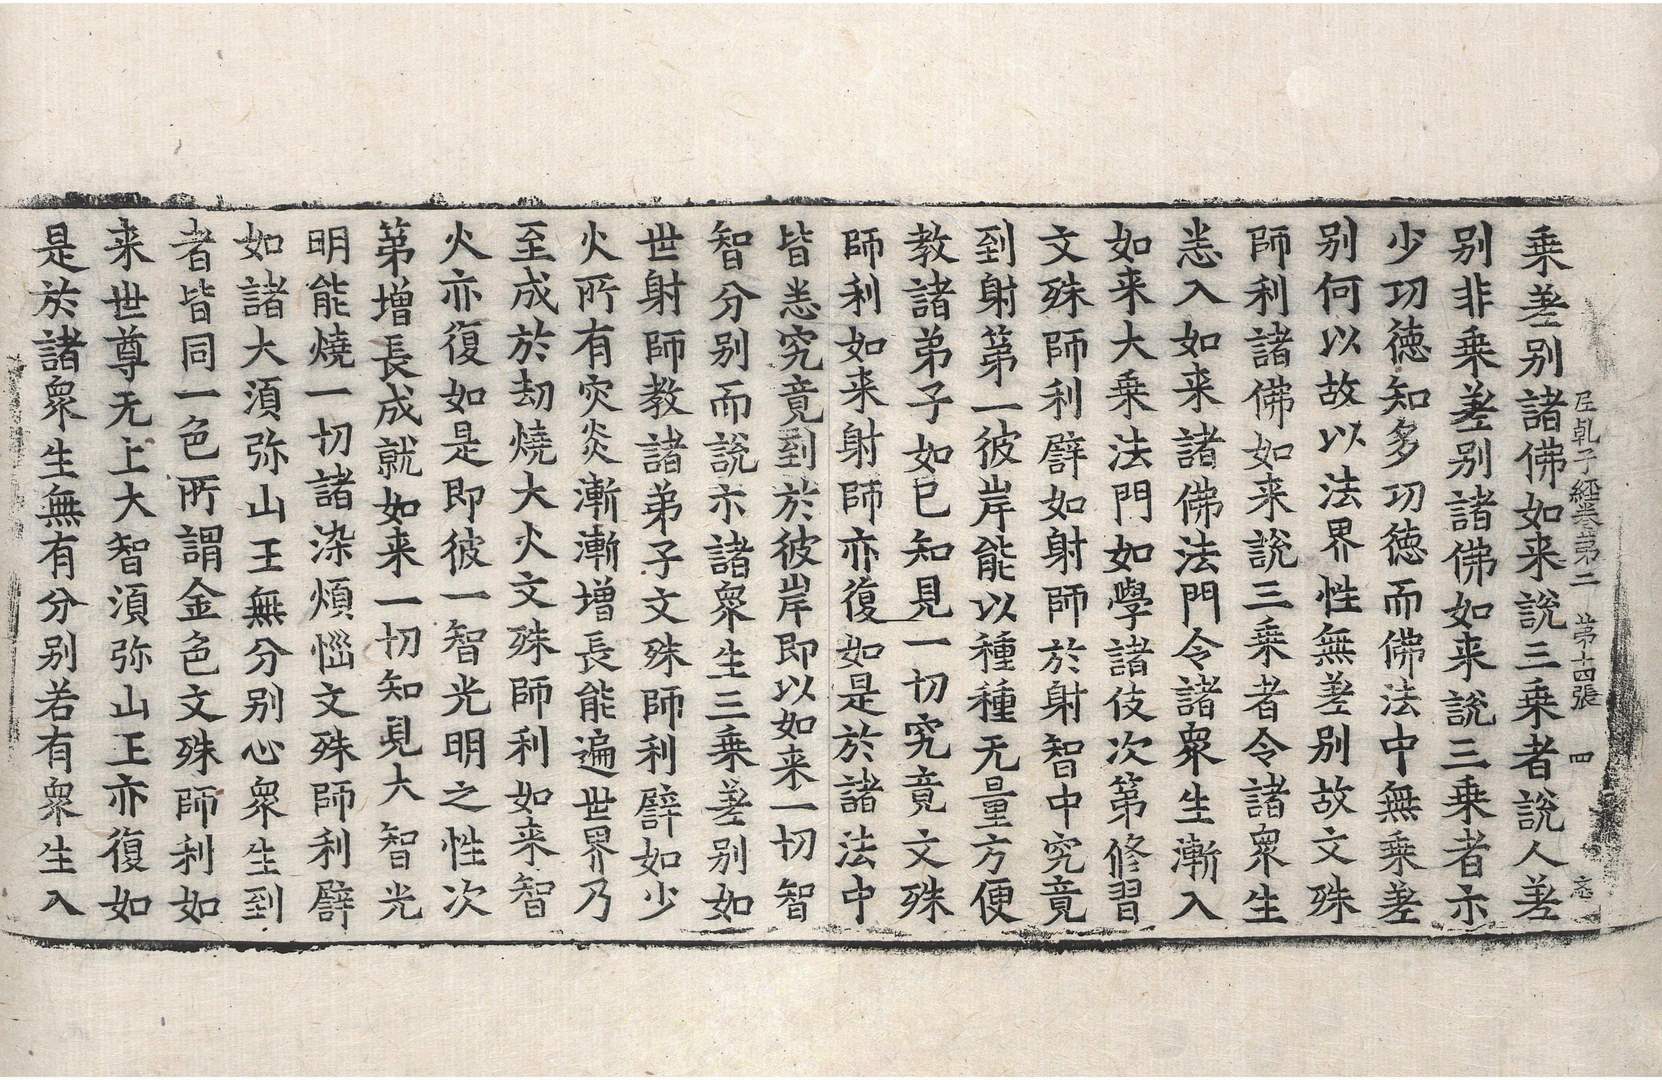 乘差别諸佛如来說三乘者說人差
别非乗差别諸佛如来說三乗者示
少功徳知多功徳而佛法中無乗差
别何以故以法界性無差别故文殊
師利諸佛如来說三乗者令諸衆生
悉入如来諸佛法門令諸衆生漸入
如来大乗法門如學諸伎次第修習
文殊師利譬如射師於射智中究竟
到射第一彼岸能以種種无量方便
教諸弟子如已知見一切究竟文殊
師利如来射師亦復如是於諸法中
皆悉究竟到於彼岸即以如来一切智
智分别而說示諸衆生三乗差别如
世射師教諸弟子文殊師利譬如少
火所有灾炎漸漸増長能遍世界乃
至成於劫燒大火文殊師利如来智
火亦復如是即彼一智光明之性次
第増長成就如来一切知見大智光
明能燒一切諸染煩惱文殊師利譬
如諸大湏弥山王無分别心衆生到
者皆同一色所謂金色文殊師利如
来世尊无上大智湏弥山王亦復如
是於諸衆生無有分别若有衆生入
尼乹子經卷第二 第十四張 四